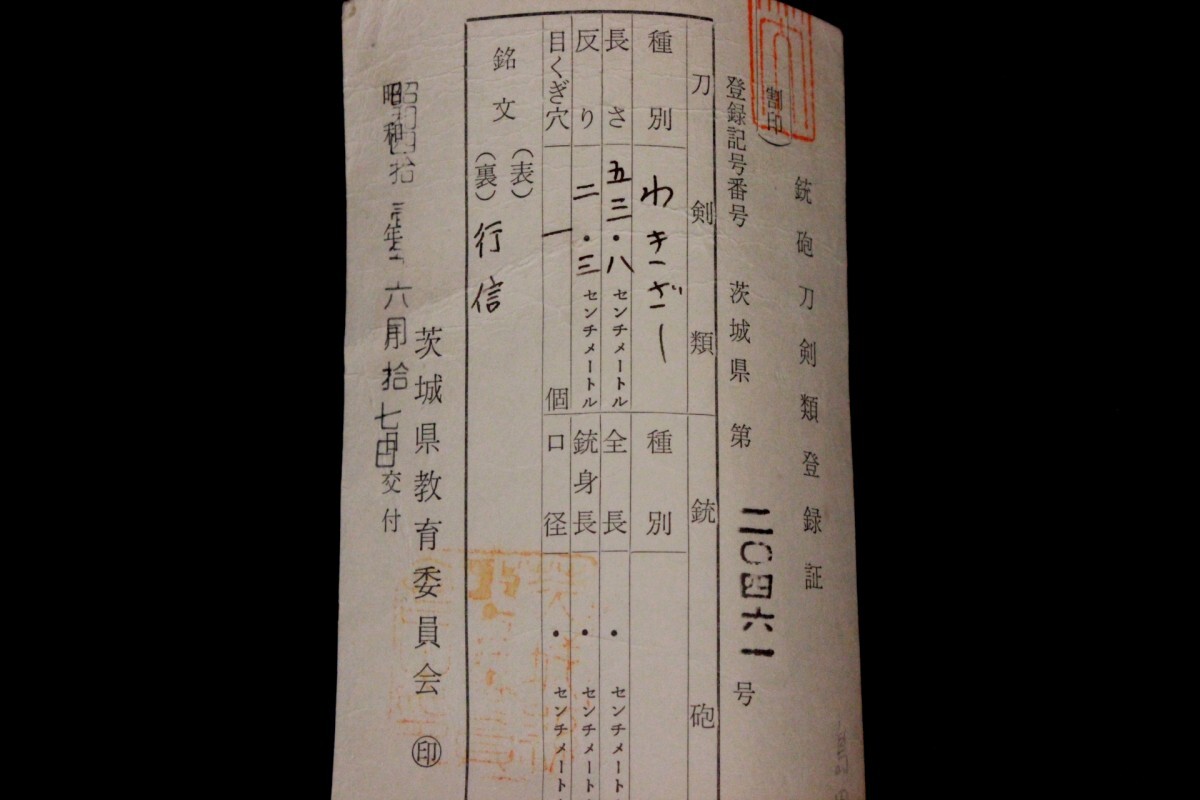 銃砲刀剣類登録証
(割印)
登録記号番号 茨城県 第 二〇四六一 号
刀剣類
種別 わきざし
長さ 五三・八 センチメートル
反り 二・三 センチメートル
目くぎ穴 一 個
銘文 (表)
(裏) 行信
銃砲
種別
全長 ・ センチメート
銃身長 ・ センチメート
口径 ・ センチメート
茨城県教育委員会 ㊞
昭和四拾 年 六月拾七日交付